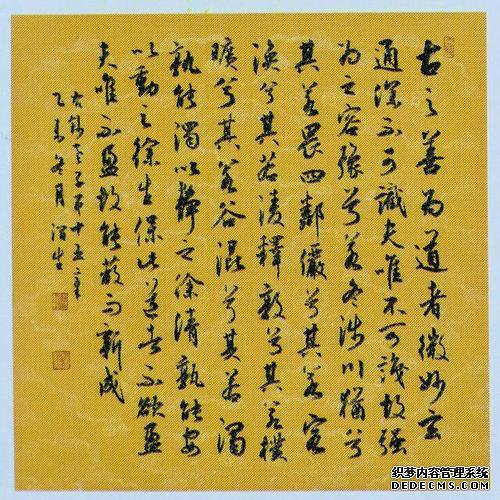 古之善為道者微妙玄
通深不可識夫唯不可識故強
為之容豫兮若冬涉川猶兮
其若畏四鄰儼兮其若客
渙兮其若凌釋敦兮其若樸
曠兮其若谷混兮其若濁
孰能濁以靜之徐清孰能安
以動之徐生保此道者不欲盈
夫唯不盈故能蔽而新成
右錄老子第十五章
冬月
织梦内容管理系统
DEDECMS.COM